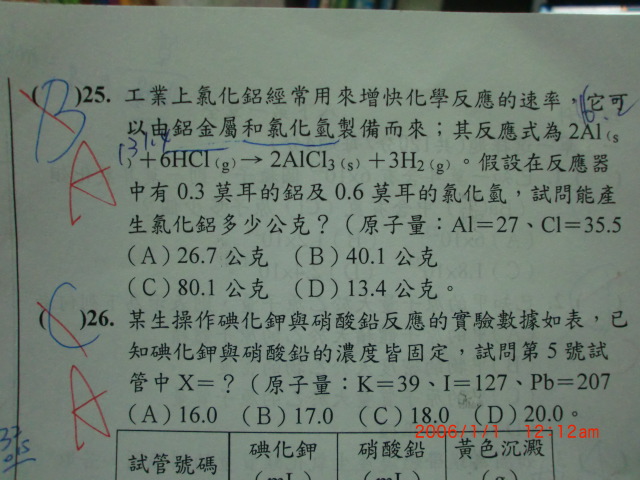 ( B )25. 工業上氯化鋁經常用來增快化學反應的速率，它可
以由鋁金屬和氯化氫製備而來；其反應式為 2Al(s
)+6HCl(g)→ 2AlCl3(s) +3H2(g)。假設在反應器
A
中有 0.3 莫耳的鋁及 0.6 莫耳的氯化氫，試問能產
生氯化鋁多少公克？（原子量：Al=27、Cl=35.5
（A）26.7 公克 （B）40.1 公克
（C）80.1 公克 （D）13.4 公克。
( C )26. 某生操作碘化鉀與硝酸鉛反應的實驗數據如表，已
知碘化鉀與硝酸鉛的濃度皆固定，試問第 5 號試
A
管中 X=？（原子量：K=39、I=127、Pb=207
（A）16.0 （B）17.0 （C）18.0 （D）20.0。
2006/1/1 12:12am
試管號碼 碘化鉀 硝酸鉛 黃色沉澱
(mL) (mL) (g)